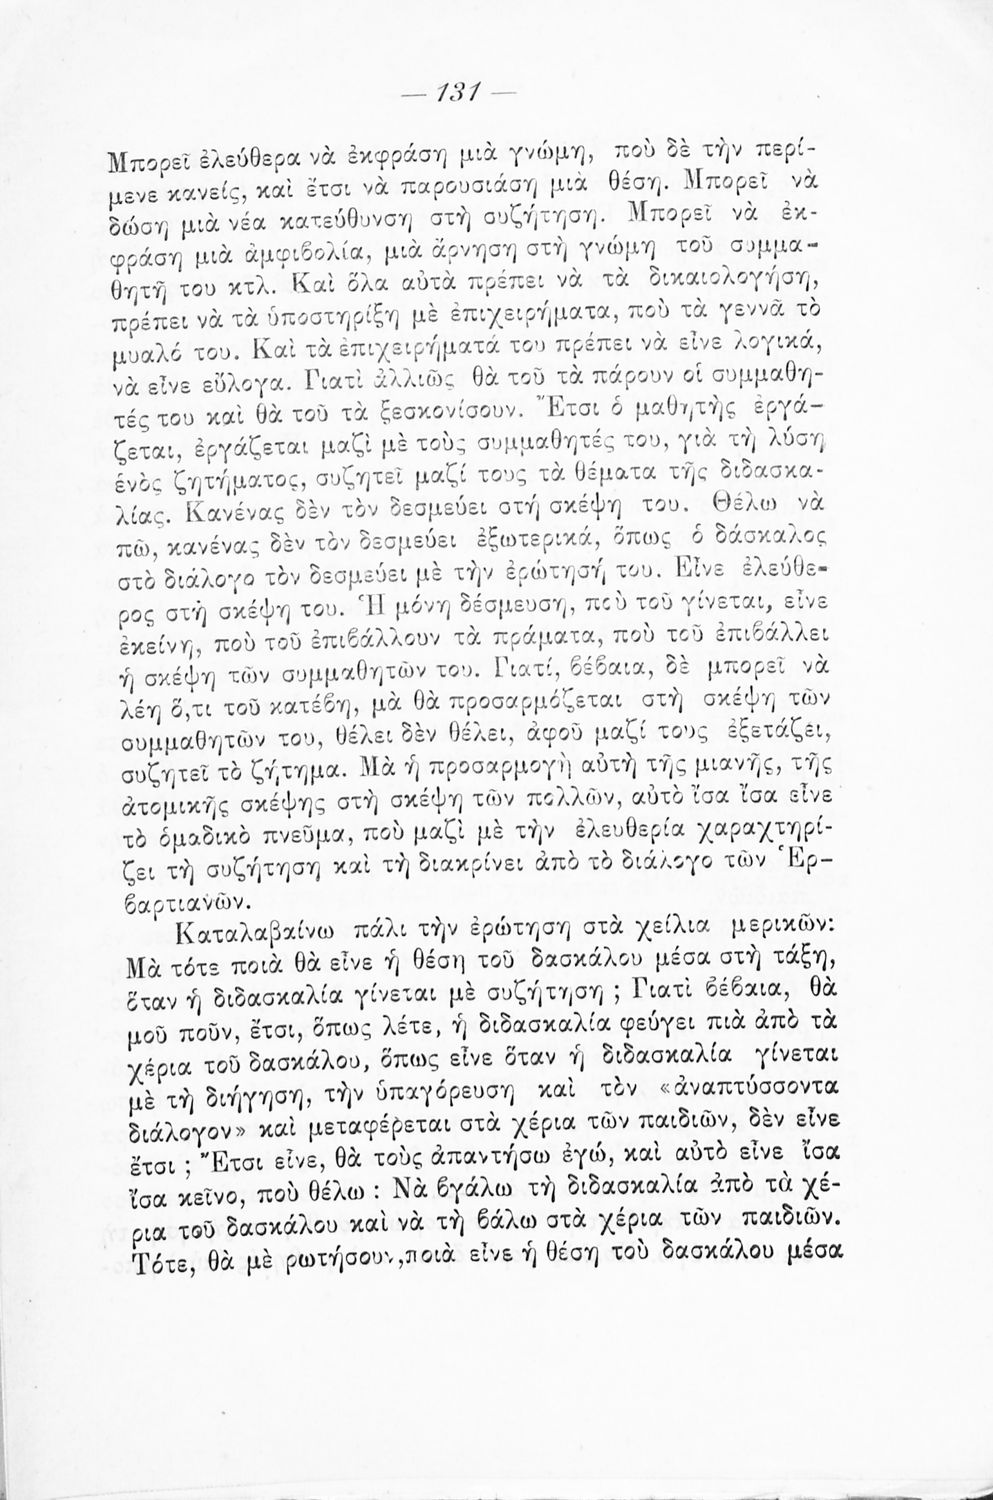 — 131 —
Μπορεῖ ἐλεύθερα νὰ ἐκφράση μιὰ γνώμη, ποὺ δὲ τὴν περί-
μενε κανείς, καὶ ἔτσι νὰ παρουσιάση μιὰ θέση. Μπορεῖ νὰ
δώση μιὰ νέα κατεύθυνση στὴ συζήτηση. Μπορεῖ νὰ ἐκ-
φράση μιὰ ἀμφιβολία, μιὰ ἄρνηση στὴ γνώμη τοῦ συμμα-
θητῆ του κτλ. Καὶ ὅλα αὐτὰ πρέπει νὰ τὰ δικαιολογήση,
πρέπει νὰ τὰ ὑποστηρίξη μὲ ἐπιχειρήματα, ποὺ τὰ γεννᾶ τὸ
μυαλό του. Καὶ τὰ ἐπιχειρήματά του πρέπει νὰ εἶνε λογικά,
νὰ εἶνε εὔλογα. Γιατὶ ἀλλιῶς θὰ τοῦ τὰ πάρουν οἱ συμμαθη-
τές του καὶ θὰ τοῦ τὰ ξεσκονίσουν. Ἔτσι ὁ μαθητὴς ἐργά-
ζεται, ἐργάζεται μαζὶ μὲ τοὺς συμμαθητές του, γιὰ τὴ λύση
ἑνὸς ζητήματος, συζητεῖ μαζί τους τὰ θέματα τῆς διδασκα-
λίας. Κανένας δὲν τὸν δεσμεύει στὴ σκέψη του. Θέλω νὰ
πῶ, κανένας δὲν τὸν δεσμεύει ἐξωτερικά, ὅπως ὁ δάσκαλος
στὸ διάλογο τὸν δεσμεύει μὲ τὴν ἐρώτησή του. Εἶνε ἐλεύθε-
ρος στὴ σκέψη του. Ἡ μόνη δέσμευση, ποὺ τοῦ γίνεται, εἶνε
ἐκείνη, ποὺ τοῦ ἐπιβάλλουν τὰ πράματα, ποὺ τοῦ ἐπιβάλλει
ἡ σκέψη τῶν συμμαθητῶν του. Γιατί, βέβαια, δὲ μπορεῖ νὰ
λέη ὅ,τι τοῦ κατέβη, μὰ θὰ προσαρμόζεται στὴ σκέψη τῶν
συμμαθητῶν του, θέλει δὲν θέλει, ἀφοῦ μαζί τους ἐξετάζει,
συζητεῖ τὸ ζήτημα. Μὰ ἡ προσαρμογὴ αὐτὴ τῆς μιανῆς, τῆς
ἀτομικῆς σκέψης στὴ σκέψη τῶν πολλῶν, αὐτὸ ἴσα ἴσα εἶνε
τὸ ὁμαδικὸ πνεῦμα, ποὺ μαζὶ μὲ τὴν ἐλευθερία χαραχτηρί-
ζει τὴ συζήτηση καὶ τὴ διακρίνει ἀπὸ τὸ διάλογο τῶν Ἑρ-
βαρτιανῶν.
Καταλαβαίνω πάλι τὴν ἐρώτηση στὰ χείλια μερικῶν:
Μὰ τότε ποιὰ θὰ εἶνε ἡ θέση τοῦ δασκάλου μέσα στὴ τάξη,
ὅταν ἡ διδασκαλία γίνεται μὲ συζήτηση ; Γιατὶ βέβαια, θὰ
μοῦ ποῦν, ἔτσι, ὅπως λέτε, ἡ διδασκαλία φεύγει πιὰ ἀπὸ τὰ
χέρια τοῦ δασκάλου, ὅπως εἶνε ὅταν ἡ διδασκαλία γίνεται
μὲ τὴ διήγηση, τὴν ὑπαγόρευση καὶ τὸν «ἀναπτύσσοντα
διάλογον» καὶ μεταφέρεται στὰ χέρια τῶν παιδιῶν, δὲν εἶνε
ἔτσι ; Ἔτσι εἶνε, θὰ τοὺς ἀπαντήσω ἐγώ, καὶ αὐτὸ εἶνε ἴσα
ἴσα κεῖνο, ποὺ θέλω : Νὰ βγάλω τὴ διδασκαλία ἀπὸ τὰ χέ-
ρια τοῦ δασκάλου καὶ νὰ τὴ βάλω στὰ χέρια τῶν παιδιῶν.
Τότε, θὰ μὲ ρωτήσουν, ποιὰ εἶνε ἡ θέση τοῦ δασκάλου μέσα